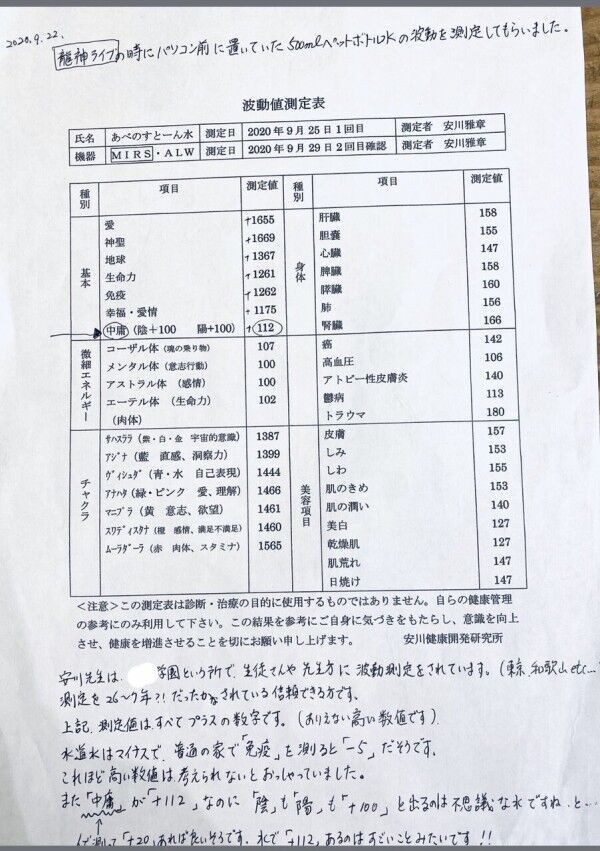 2020.9.22.
龍神ライブの時にパソコン前に置いていた500mlペットボトル水の波動を測定してもらいました。
波動値測定表
氏名 あべのすとーん水 測定日 2020年9月25日1回目 測定者 安川雅章
機器 MIRS・ALW 測定日 2020年9月29日2回目確認 測定者 安川雅章
種別 項目 測定値 種別 項目 測定値
基本
愛 +1655
神聖 +1669
地球 +1367
生命力 +1261
免疫 +1262
幸福・愛情 +1175
中庸(陰+100 陽+100) +112
微細エネルギー
コーザル体(魂の乗り物) 107
メンタル体(意志行動) 100
アストラル体(感情) 100
エーテル体(生命力) 102
(肉体)
チャクラ
サハスララ(紫・白・金 宇宙的意識) 1387
アジナ(藍 直感、洞察力) 1399
ヴィシュダ(青・水 自己表現) 1444
アナハタ(緑・ピンク 愛、理解) 1466
マニプラ(黄 意志、欲望) 1461
スワディスタナ(橙 感情、満足不満足) 1460
ムーラダーラ(赤 肉体、スタミナ) 1565
身体
肝臓 158
胆嚢 155
心臓 147
脾臓 158
膵臓 160
肺 156
腎臓 166
癌 142
高血圧 106
アトピー性皮膚炎 140
鬱病 113
トラウマ 180
美容項目
皮膚 157
しみ 153
しわ 155
肌のきめ 153
肌の潤い 140
美白 127
乾燥肌 127
肌荒れ 147
日焼け 147
<注意>この測定表は診断・治療の目的に使用するものではありません。自らの健康管理
の参考にのみ利用して下さい。この結果を参考にご自身に気づきをもたらし、意識を向上
させ、健康を増進させることを切にお願い申し上げます。 安川健康開発研究所
安川先生は、 学園という所で、生徒さんや先生方に波動測定をされています。(東京、和歌山etc...
測定を26〜7年?!だったかなされている信頼できる方です。
上記、測定値はすべてプラスの数字です。(ありえない高い数値です)
水道水はマイナスで、普通の家で「免疫」を測ると「-5」だそうです。
これほど高い数値は考えられないとおっしゃっていました。
また「中庸」が「+112」なのに「陰」も「陽」も「+100」と出るのは不思議な水ですね、と...
測って「+20」あれば良いそうです。水で「+112」あるのはすごいことみたいです!!